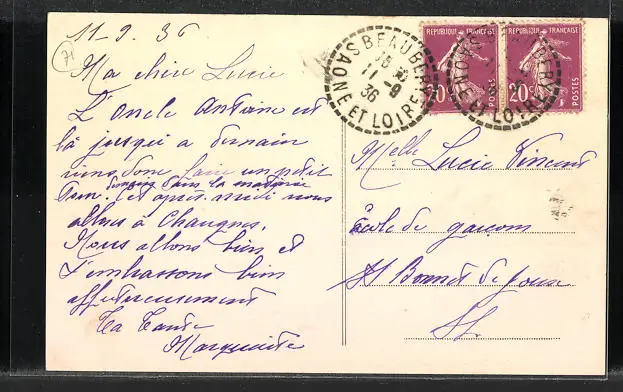 11-9. 36
71
Ma chère Lucie
L'Oncle Antoine est
là jusqu'à demain
viens donc faire un petit
dans la matinée
tour. Cet après-midi nous
allons à Changnes.
Nous allons bien et
t'embrassons bien
affectueusement
Ta tante
Marguerite
REPUBLIQUE FRANÇAISE
20c
POSTES
REPUBLIQUE FRANÇAISE
20c
POSTES
11 -9
36
SAONE ET LOIRE
SAONE ET LOIRE
Melle Lucie Vincent
École de garçons
St Bonnet de Joux